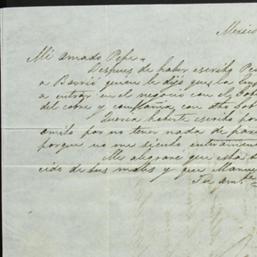 Mexico
Mi amado Pepe.
Despues de haber escrito
a Barrió quien le dijo que la
a entrar en el negocio con el
del cobre y compañia, con otro
Queria haberte escrito por
omito por no tener nada de
porque no me siento enteramen
Me alegraré que esta
cido de tus males y que Manue
Tu am.